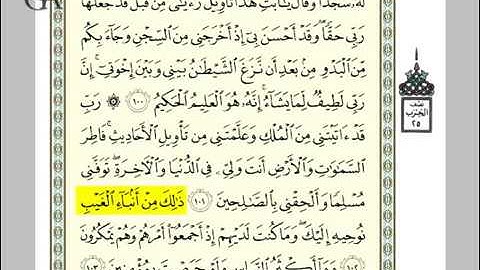 لَهُۥ سُجَّدًا وَقَالَ يَٰٓأَبَتِ هَٰذَا تَأْوِيلُ رُءْيَٰىَ مِن قَبْلُ قَدْ جَعَلَهَا
رَبِّى حَقًّا وَقَدْ أَحْسَنَ بِىٓ إِذْ أَخْرَجَنِى مِنَ ٱلسِّجْنِ وَجَآءَ بِكُم
مِّنَ ٱلْبَدْوِ مِنۢ بَعْدِ أَن نَّزَغَ ٱلشَّيْطَٰنُ بَيْنِى وَبَيْنَ إِخْوَتِىٓ إِنَّ
رَبِّى لَطِيفٌ لِّمَا يَشَآءُ إِنَّهُۥ هُوَ ٱلْعَلِيمُ ٱلْحَكِيمُ ١٠٠ ۞ رَبِّ
قَدْ ءَاتَيْتَنِى مِنَ ٱلْمُلْكِ وَعَلَّمْتَنِى مِن تَأْوِيلِ ٱلْأَحَادِيثِ فَاطِرَ
ٱلسَّمَٰوَٰتِ وَٱلْأَرْضِ أَنتَ وَلِىِّۦ فِى ٱلدُّنْيَا وَٱلْءَاخِرَةِ تَوَفَّنِى
مُسْلِمًا وَأَلْحِقْنِى بِٱلصَّٰلِحِينَ ١٠١ ذَٰلِكَ مِنْ أَنۢبَآءِ ٱلْغَيْبِ
نُوحِيهِ إِلَيْكَ وَمَا كُنتَ لَدَيْهِمْ إِذْ أَجْمَعُوٓا۟ أَمْرَهُمْ وَهُمْ يَمْكُرُونَ
١٠٢ وَمَآ أَكْثَرُ ٱلنَّاسِ وَلَوْ حَرَصْتَ بِمُؤْمِنِينَ ١٠٣
نصف
الحزب
٢٥